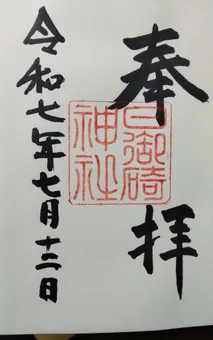 奉拝
日御碕
神社
令和七年七月十三日